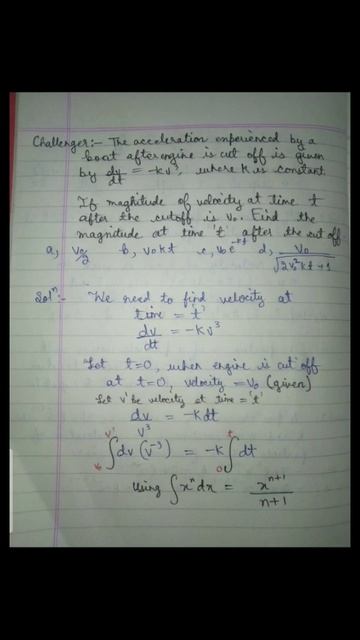 Challenger:- The acceleration experienced by a
boat after engine is cut off is given
by dv/dt = -kv³, where K is constant.
If maghitude of velocity at time t
after the cutoff is v₀. Find the
magnitude at time 't' after the cut off
a, v₀/2 b, v₀kt c, v₀e^-kt d, v₀/√(2v₀²kt+1)
Solⁿ:- We need to find velocity at
time = 't'
dv/dt = -Kv³
Let t=0, when engine is cut off
at t=0, velocity = v₀ (given)
Let v' be velocity at time = 't'
dv/v³ = -Kdt
∫dv(v⁻³) = -k∫dt
v' v₀ t 0
Using ∫xⁿdx = xⁿ⁺¹/n+1